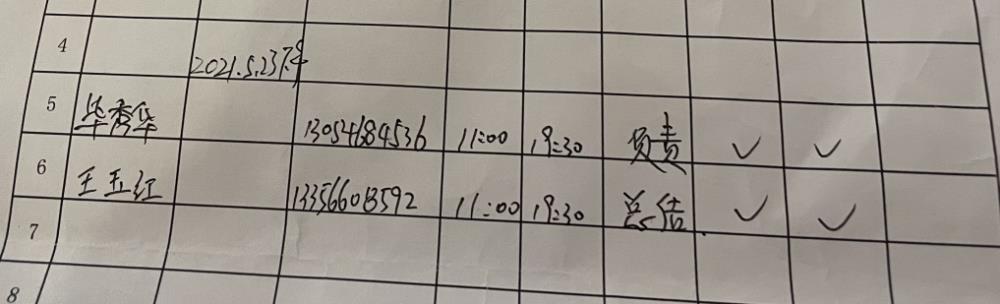 4
2021.5.23
5 毕秀华 13054684536 11:00 19:30 负责 ✓ ✓
6 王玉红 13356608592 11:00 19:30 总结 ✓ ✓
7
8